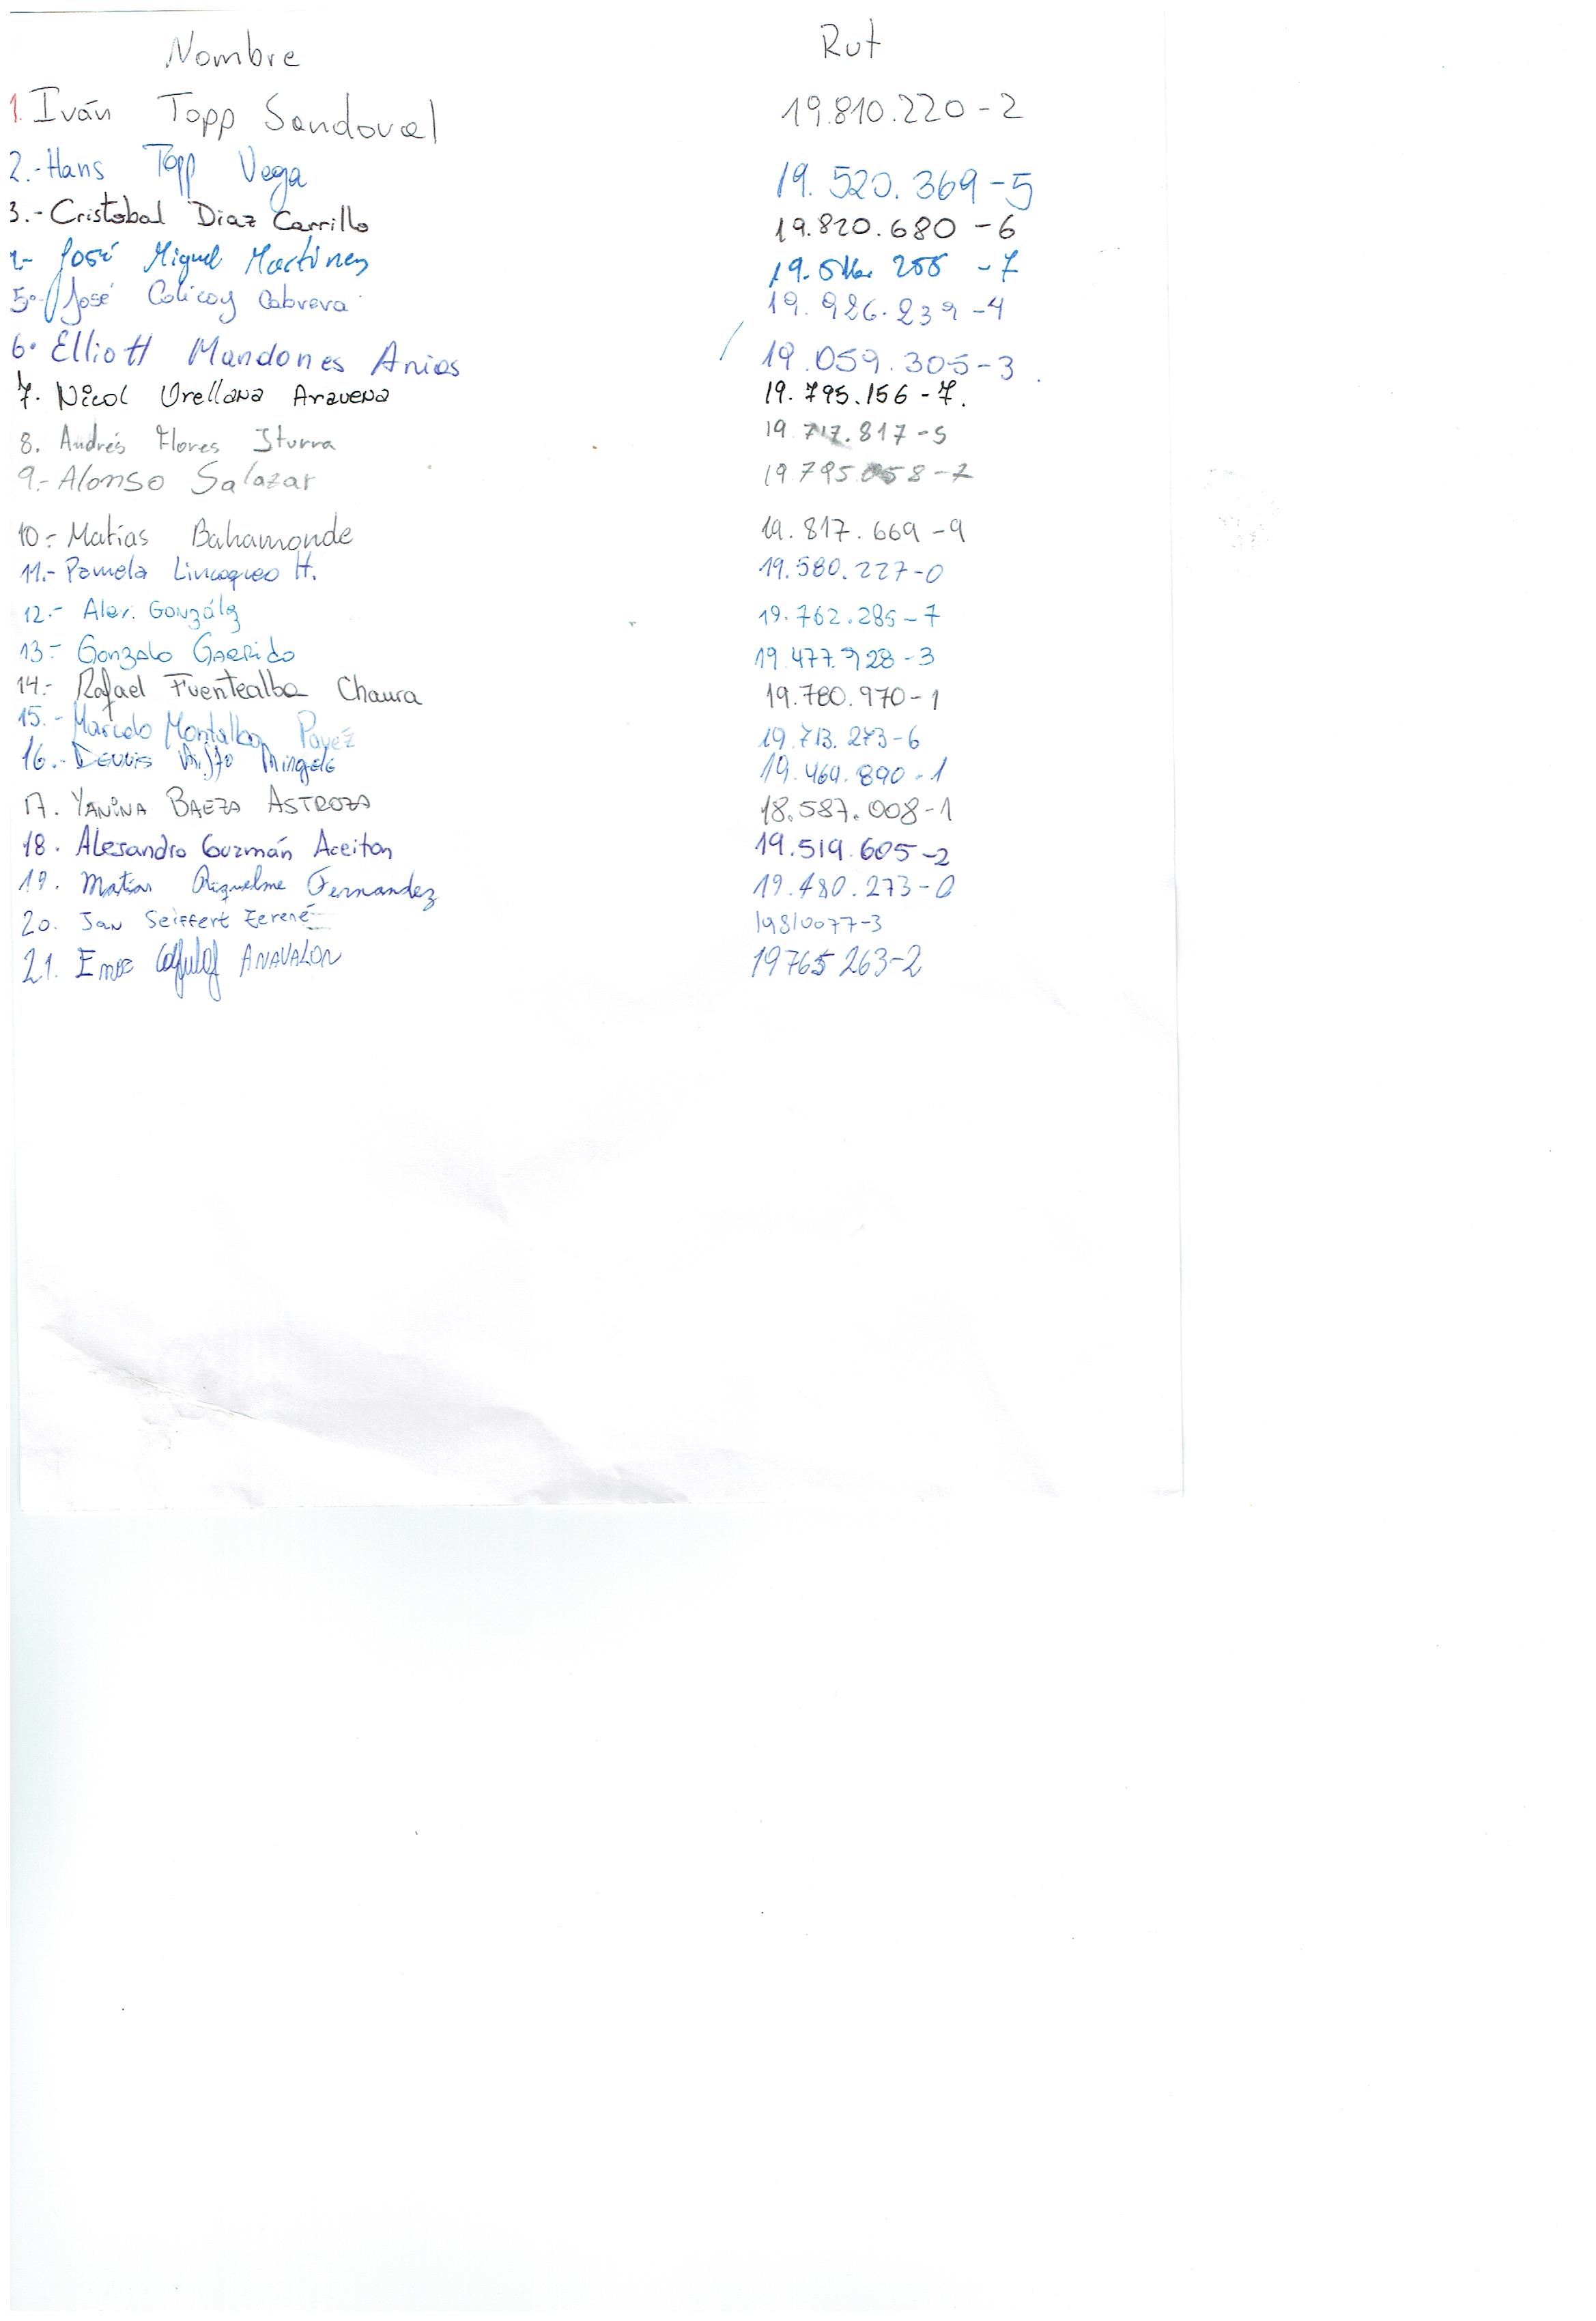 Nombre Rut
1. Iván Topp Sandoval 19.810.220-2
2.- Hans Topp Vega 19.520.369-5
3.- Cristobal Diaz Carrillo 19.820.680-6
José Miguel Martinez
5.- José Colicoy Cabrera 19.926.239-4
6. Elliott Mandones Arias 19.059.305-3
7. Nicol Orellana Aravena 19.795.156-7.
8. Andrés Flores Iturra 19.717.817-5
9.- Alonso Salazar
10.- Matías Bahamonde 19.817.669-9
11.- Pamela Lincoqueo H. 19.580.227-0
12.- Alex. González 19.762.285-7
13.- Gonzalo Garrido 19.477.928-3
14.- Rafael Fuentealba Chaura 19.780.970-1
15.- Marcelo Montalba Pavez 19.713.273-6
16.- Dennis 19.464.890-1
17. YANINA BAEZA ASTROZA 18.587.008-1
18. Alesandro Guzmán Aceiton 19.519.605-2
19. Matias Riquelme Fernandez 19.480.273-0
20. Jan Seiffert Zerené 19810077-3
21. ANAVALON 19765263-2